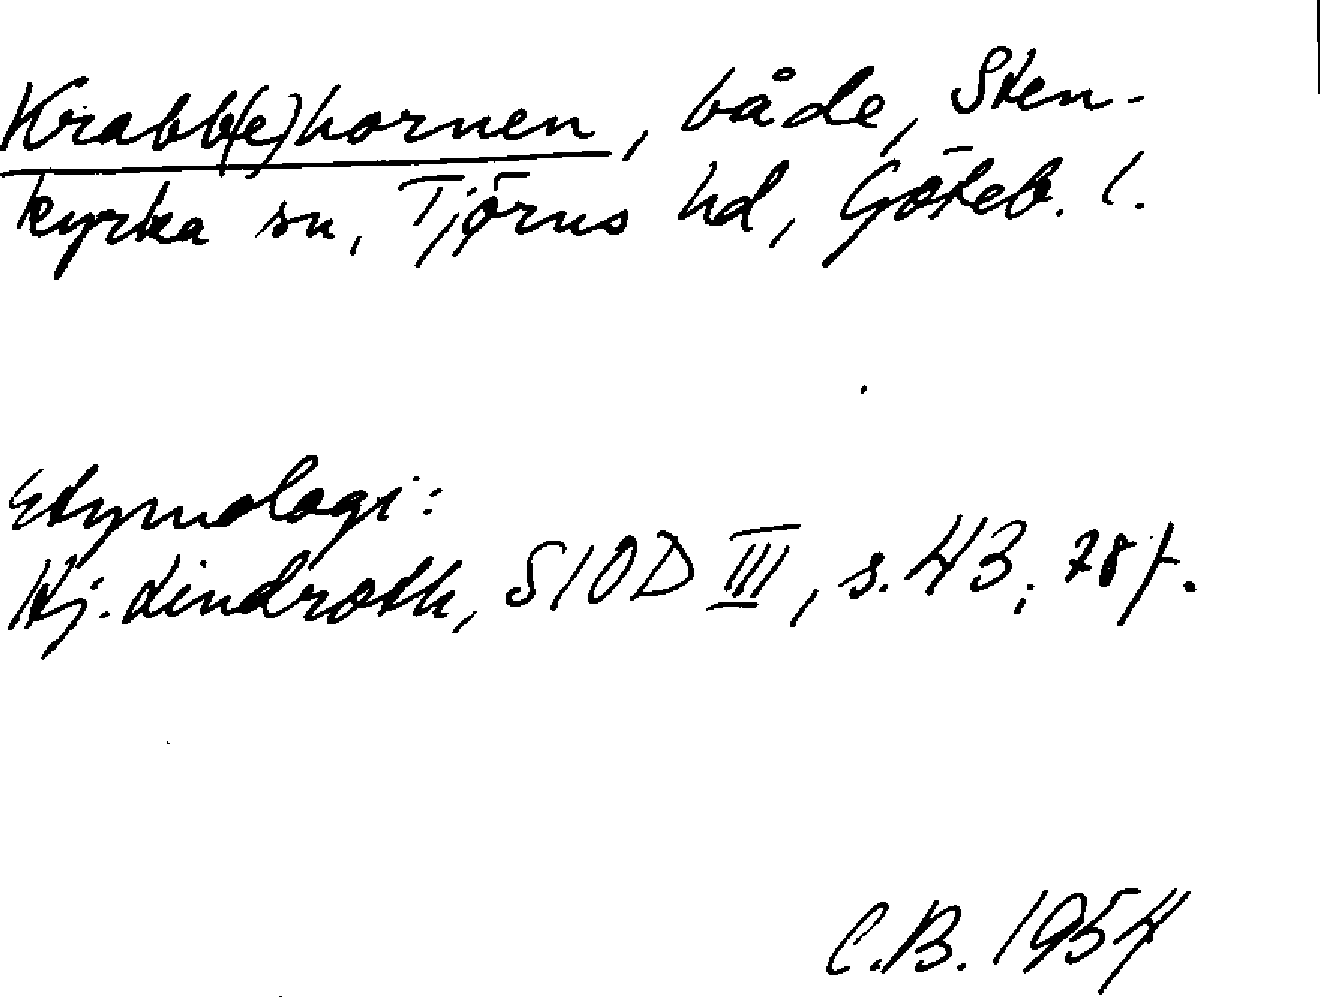 Krabb(e)hornen, både, Sten-
kyrka sn, Tjörns hd, Göteb. l.
Etymologi:
Hj. Lindroth, SIOD III, s. 43, 78 f.
C.B. 1954